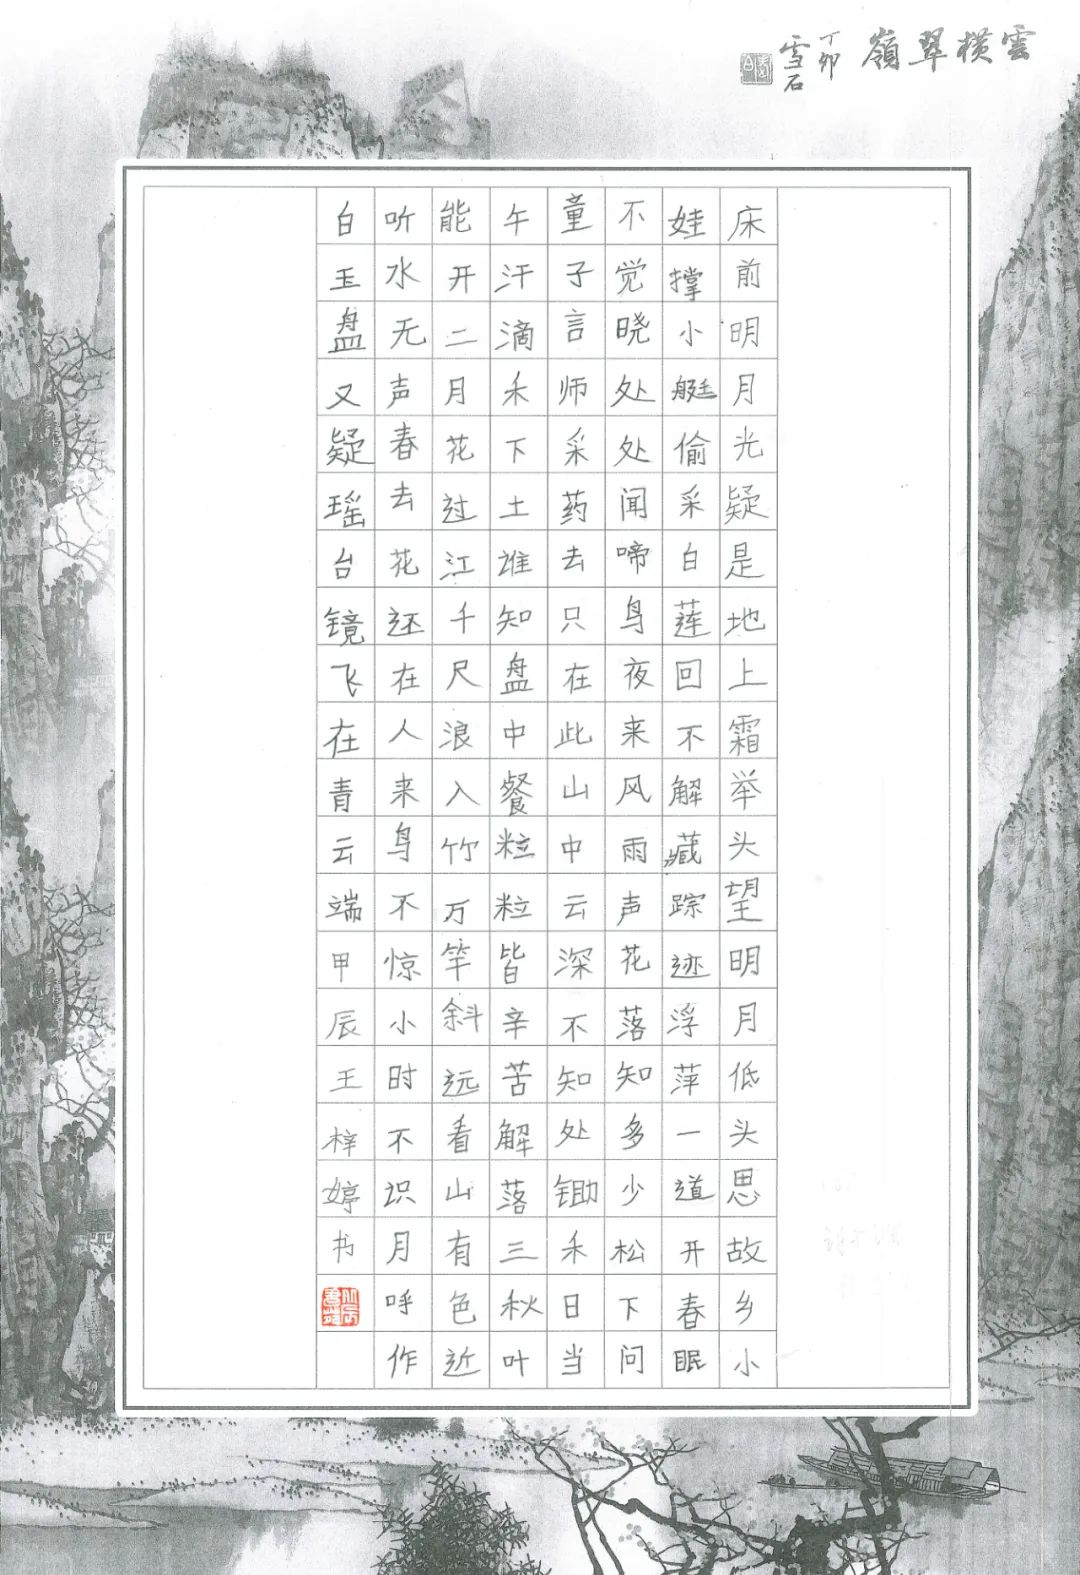 雲橫翠嶺
丁卯
雪石
床前明月光疑是地上霜举头望明月低头思故乡小
娃撑小艇偷采白莲回不解藏踪迹浮萍一道开春眠
不觉晓处处闻啼鸟夜来风雨声花落知多少松下问
童子言师采药去只在此山中云深不知处锄禾日当
午汗滴禾下土谁知盘中餐粒粒皆辛苦解落三秋叶
能开二月花过江千尺浪入竹万竿斜远看山有色近
听水无声春去花还在人来鸟不惊小时不识月呼作
白玉盘又疑瑶台镜飞在青云端甲辰王梓婷书